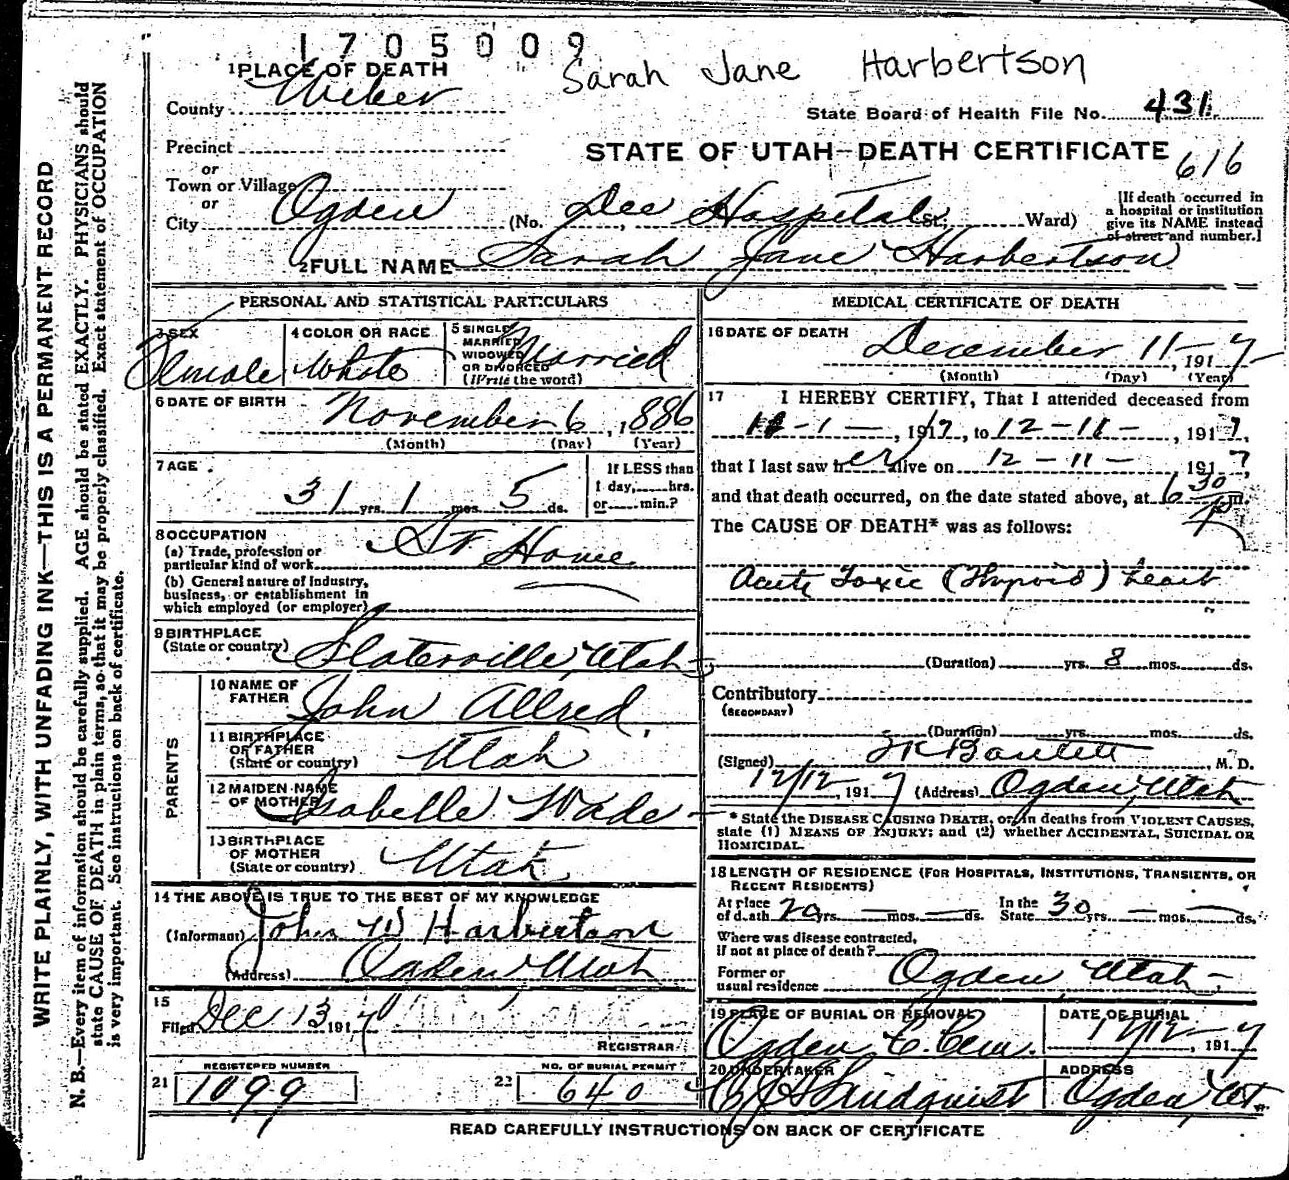 1705009
Sarah Jane Harbertson
1 PLACE OF DEATH
County Weber
State Board of Health File No. 431.
Precinct
or
STATE OF UTAH—DEATH CERTIFICATE
616
Town or Village
or
City Ogden (No. Dee Hospital St; Ward)
[If death occurred in
a hospital or institution
give its NAME instead
of street and number.]
2 FULL NAME Sarah Jane Harbertson
PERSONAL AND STATISTICAL PARTICULARS
3 SEX
Female
4 COLOR OR RACE
White
5 SINGLE
MARRIED
WIDOWED
OR DIVORCED
(Write the word)
Married
6 DATE OF BIRTH
November 6, 1886
(Month) (Day) (Year)
7 AGE
31 yrs. 1 mos. 5 ds.
If LESS than
1 day,......hrs.
or......min.?
8 OCCUPATION
(a) Trade, profession or
particular kind of work At Home
(b) General nature of Industry,
business, or establishment in
which employed (or employer)
9 BIRTHPLACE
(State or country) Slaterville, Utah
PARENTS
10 NAME OF
FATHER John Allred,
11 BIRTHPLACE
OF FATHER
(State or country) Utah
12 MAIDEN NAME
OF MOTHER Isabelle Wade
13 BIRTHPLACE
OF MOTHER
(State or country) Utah
14 THE ABOVE IS TRUE TO THE BEST OF MY KNOWLEDGE
(Informant) John W Harbertson
(Address) Ogden Utah
15
Filed Dec 13, 1917
REGISTRAR
REGISTERED NUMBER
21 1099
NO. OF BURIAL PERMIT
22 640
MEDICAL CERTIFICATE OF DEATH
16 DATE OF DEATH
December 11-, 1917
(Month) (Day) (Year)
17 I HEREBY CERTIFY, That I attended deceased from
-1-, 1917, to 12-11-, 1917,
that I last saw her alive on 12-11-, 1917,
and that death occurred, on the date stated above, at 6 30 P m.
The CAUSE OF DEATH* was as follows:
Acute Toxic (Thyroid) heart
(Duration) yrs. 8 mos. ds.
Contributory
(SECONDARY)
(Duration) yrs. mos. ds.
(Signed) Bartlett, M. D.
12/12, 1917 (Address) Ogden, Utah
* State the DISEASE CAUSING DEATH, or, in deaths from VIOLENT CAUSES,
state (1) MEANS OF INJURY; and (2) whether ACCIDENTAL, SUICIDAL OR
HOMICIDAL.
18 LENGTH OF RESIDENCE (FOR HOSPITALS, INSTITUTIONS, TRANSIENTS, OR
RECENT RESIDENTS)
At place
of death 20 yrs. — mos. — ds.
In the
State 30 yrs. — mos. — ds.
Where was disease contracted,
if not at place of death?
Former or
usual residence Ogden, Utah-
19 PLACE OF BURIAL OR REMOVAL
Ogden C. Cem.
DATE OF BURIAL
12/12-, 1917
20 UNDERTAKER
Lindquist
ADDRESS
Ogden, Ut.
READ CAREFULLY INSTRUCTIONS ON BACK OF CERTIFICATE
WRITE PLAINLY, WITH UNFADING INK—THIS IS A PERMANENT RECORD
N. B.—Every item of information should be carefully supplied. AGE should be stated EXACTLY. PHYSICIANS should
state CAUSE OF DEATH in plain terms, so that it may be properly classified. Exact statement of OCCUPATION
is very important. See instructions on back of certificate.